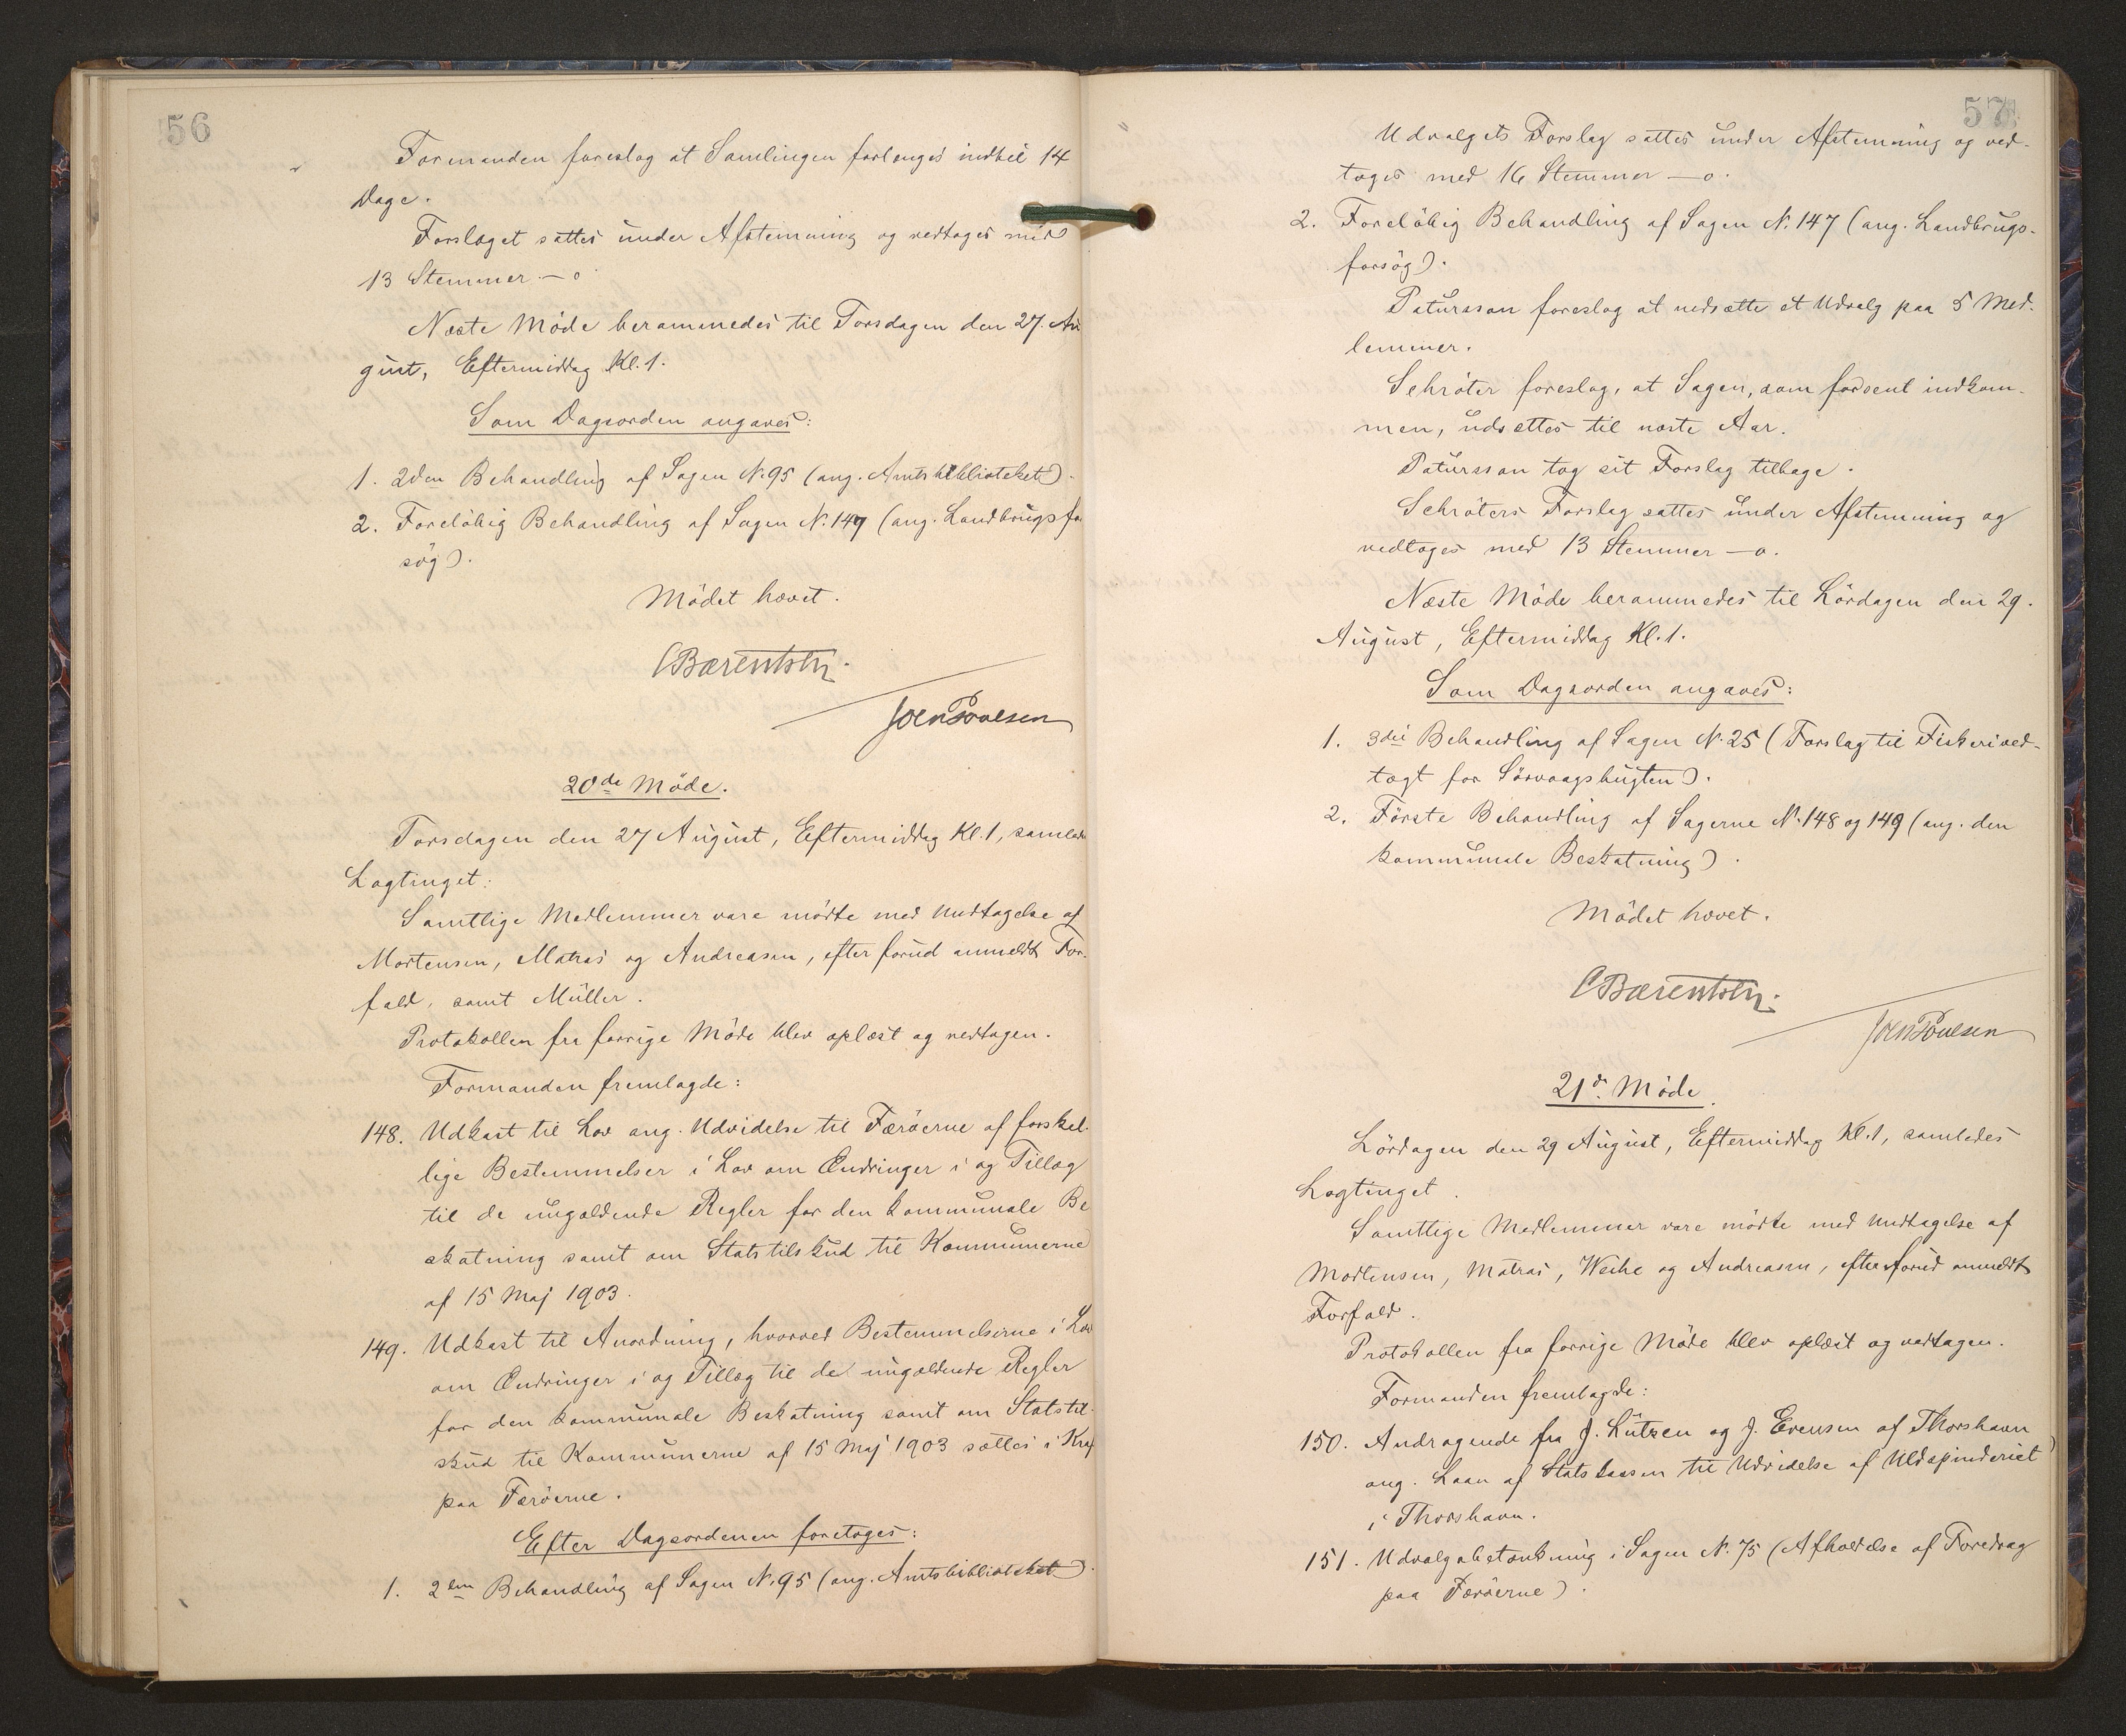 56
Formanden foreslog at Samlingen forlænges indtil 14
Dage.
Forslaget sattes under Afstemning og vedtoges med
13 Stemmer — o
Næste Möde berammedes til Torsdagen den 27. Au
gust, Eftermiddag Kl. 1.
Som Dagsorden angaves:
1. 2den Behandling af Sagen N. 95 (ang. Amtsbiblioteket).
2. Forelöbig Behandling af Sagen N. 147 (ang. Landbrugsfor
søg).
Mödet hævet.
CBærentsen.
Joen Poulsen
20de Möde.
Torsdagen den 27 August, Eftermiddag Kl. 1, samledes
Lagtinget:
Samtlige Medlemmer vare mödte med Undtagelse af
Mortensen, Matras og Andreasen, efter forud anmeldt For-
fald, samt Müller.
Protokollen fra forrige Möde blev oplæst og vedtagen.
Formanden fremlagde:
148. Udkast til Lov ang. Udvidelse til Færöerne af forskel-
lige Bestemmelser i Lov om Ændringer i og Tillæg
til de nugældende Regler for den kommunale Be
skatning samt om Statstilskud til Kommunerne
af 15 Maj 1903.
149. Udkast til Anordning, hvorved Bestemmelserne i Lov
om Ændringer i og Tillæg til de nugældende Regler
for den kommunale Beskatning samt om Statstil-
skud til Kommunerne af 15 Maj 1903 sættes i Kraf
paa Færöerne.
Efter Dagsordenen foretoges:
1. 2en Behandling af Sagen N. 95 (ang. Amtsbiblioteket).
57
Udvalgets Forslag sattes under Afstemning og ved-
toges med 16 Stemmer — o.
2. Forelöbig Behandling af Sagen N. 147 (ang. Landbrugs-
forsög).
Patursson foreslog at nedsætte et Udvalg paa 5 Med-
lemmer.
Schröter foreslog, at Sagen, som forsent indkom-
men, udsættes til næste Aar.
Patursson tog sit Forslag tilbage.
Schröters Forslag sattes under Afstemning og
vedtoges med 13 Stemmer — o.
Næste Möde berammedes til Lördagen den 29.
August, Eftermiddag Kl. 1.
Som Dagsorden angaves:
1. 3die Behandling af Sagen N. 25 (Forslag til Fiskerived-
tægt for Sörvaagsbugten).
2. Förste Behandling af Sagerne N. 148 og 149 (ang. den
kommunale Beskatning).
Mödet hævet.
CBærentsen.
Joen Poulsen
21de Möde.
Lördagen den 29 August, Eftermiddag Kl. 1, samledes
Lagtinget.
Samtlige Medlemmer vare mödte med Undtagelse af
Mortensen, Matras, Weihe og Andreasen, efter forud anmeldt
Forfald.
Protokollen fra forrige Möde blev oplæst og vedtagen.
Formanden fremlagde:
150. Andragende fra J. Lützen og J. Evensen af Thorshavn
ang. Laan af Statskassen til Udvidelse af Uldspinderiet
i Thorshavn.
151. Udvalgsbetænkning i Sagen N. 75 (Afholdelse af Foredrag
paa Færöerne).